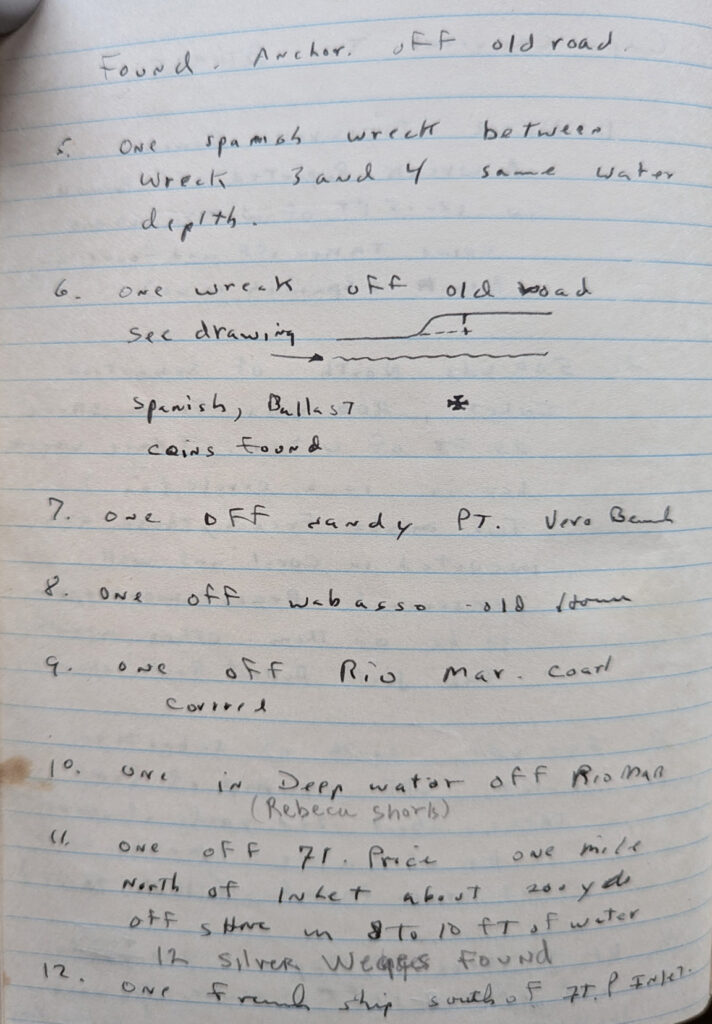 Found. Anchor. off old road.
5. one spanish wreck between
wreck 3 and 4 same water
deplth.
6. one wreck off old road
see drawing
Spanish, Ballast
coins Found
7. one off sandy PT. Vero Beach
8. one off wabasso - old
9. one off Rio Mar. Coarl
Covered
10. one in Deep water off Rio Mar
(Rebeca Shorls)
11. one off 7t. Price one mile
North of Inlet about 200 yds
off shore in 8 to 10 ft of water
12 silver Weages Found
12. one french ship south of 7t. P Inlet.